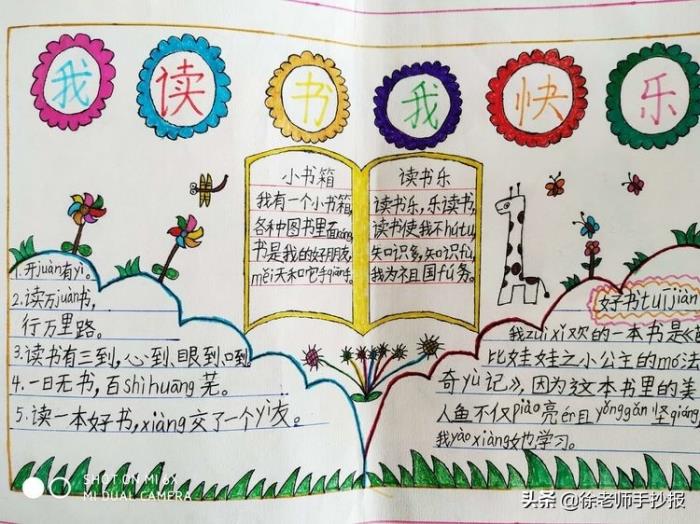 我读书我快乐
小书箱
我有一个小书箱,
各种图书里面
书是我的好朋友,
měi天和它手qiān手。
读书乐
读书乐,乐读书,
读书使我不hútu,
知识多,知识fù,
我为祖国fú务。
1.开juàn有yì。
2.读万juàn书,
行万里路。
3.读书有三到,心到、眼到、口到。
4.一日无书,百shì huāng芜。
5.读一本好书,xiāng交了一个yì友。
好书tuījiàn
我zuì xǐ欢的一本书是《芭
比娃娃之小公主的mó法
奇yù记》,因为这本书里的美
人鱼不仅piào亮ér且yǒnggǎn坚qiáng,
我yào xiàng她学习。
SHOT ON MI 6X
MI DUAL CAMERA
头条 @徐老师手抄报